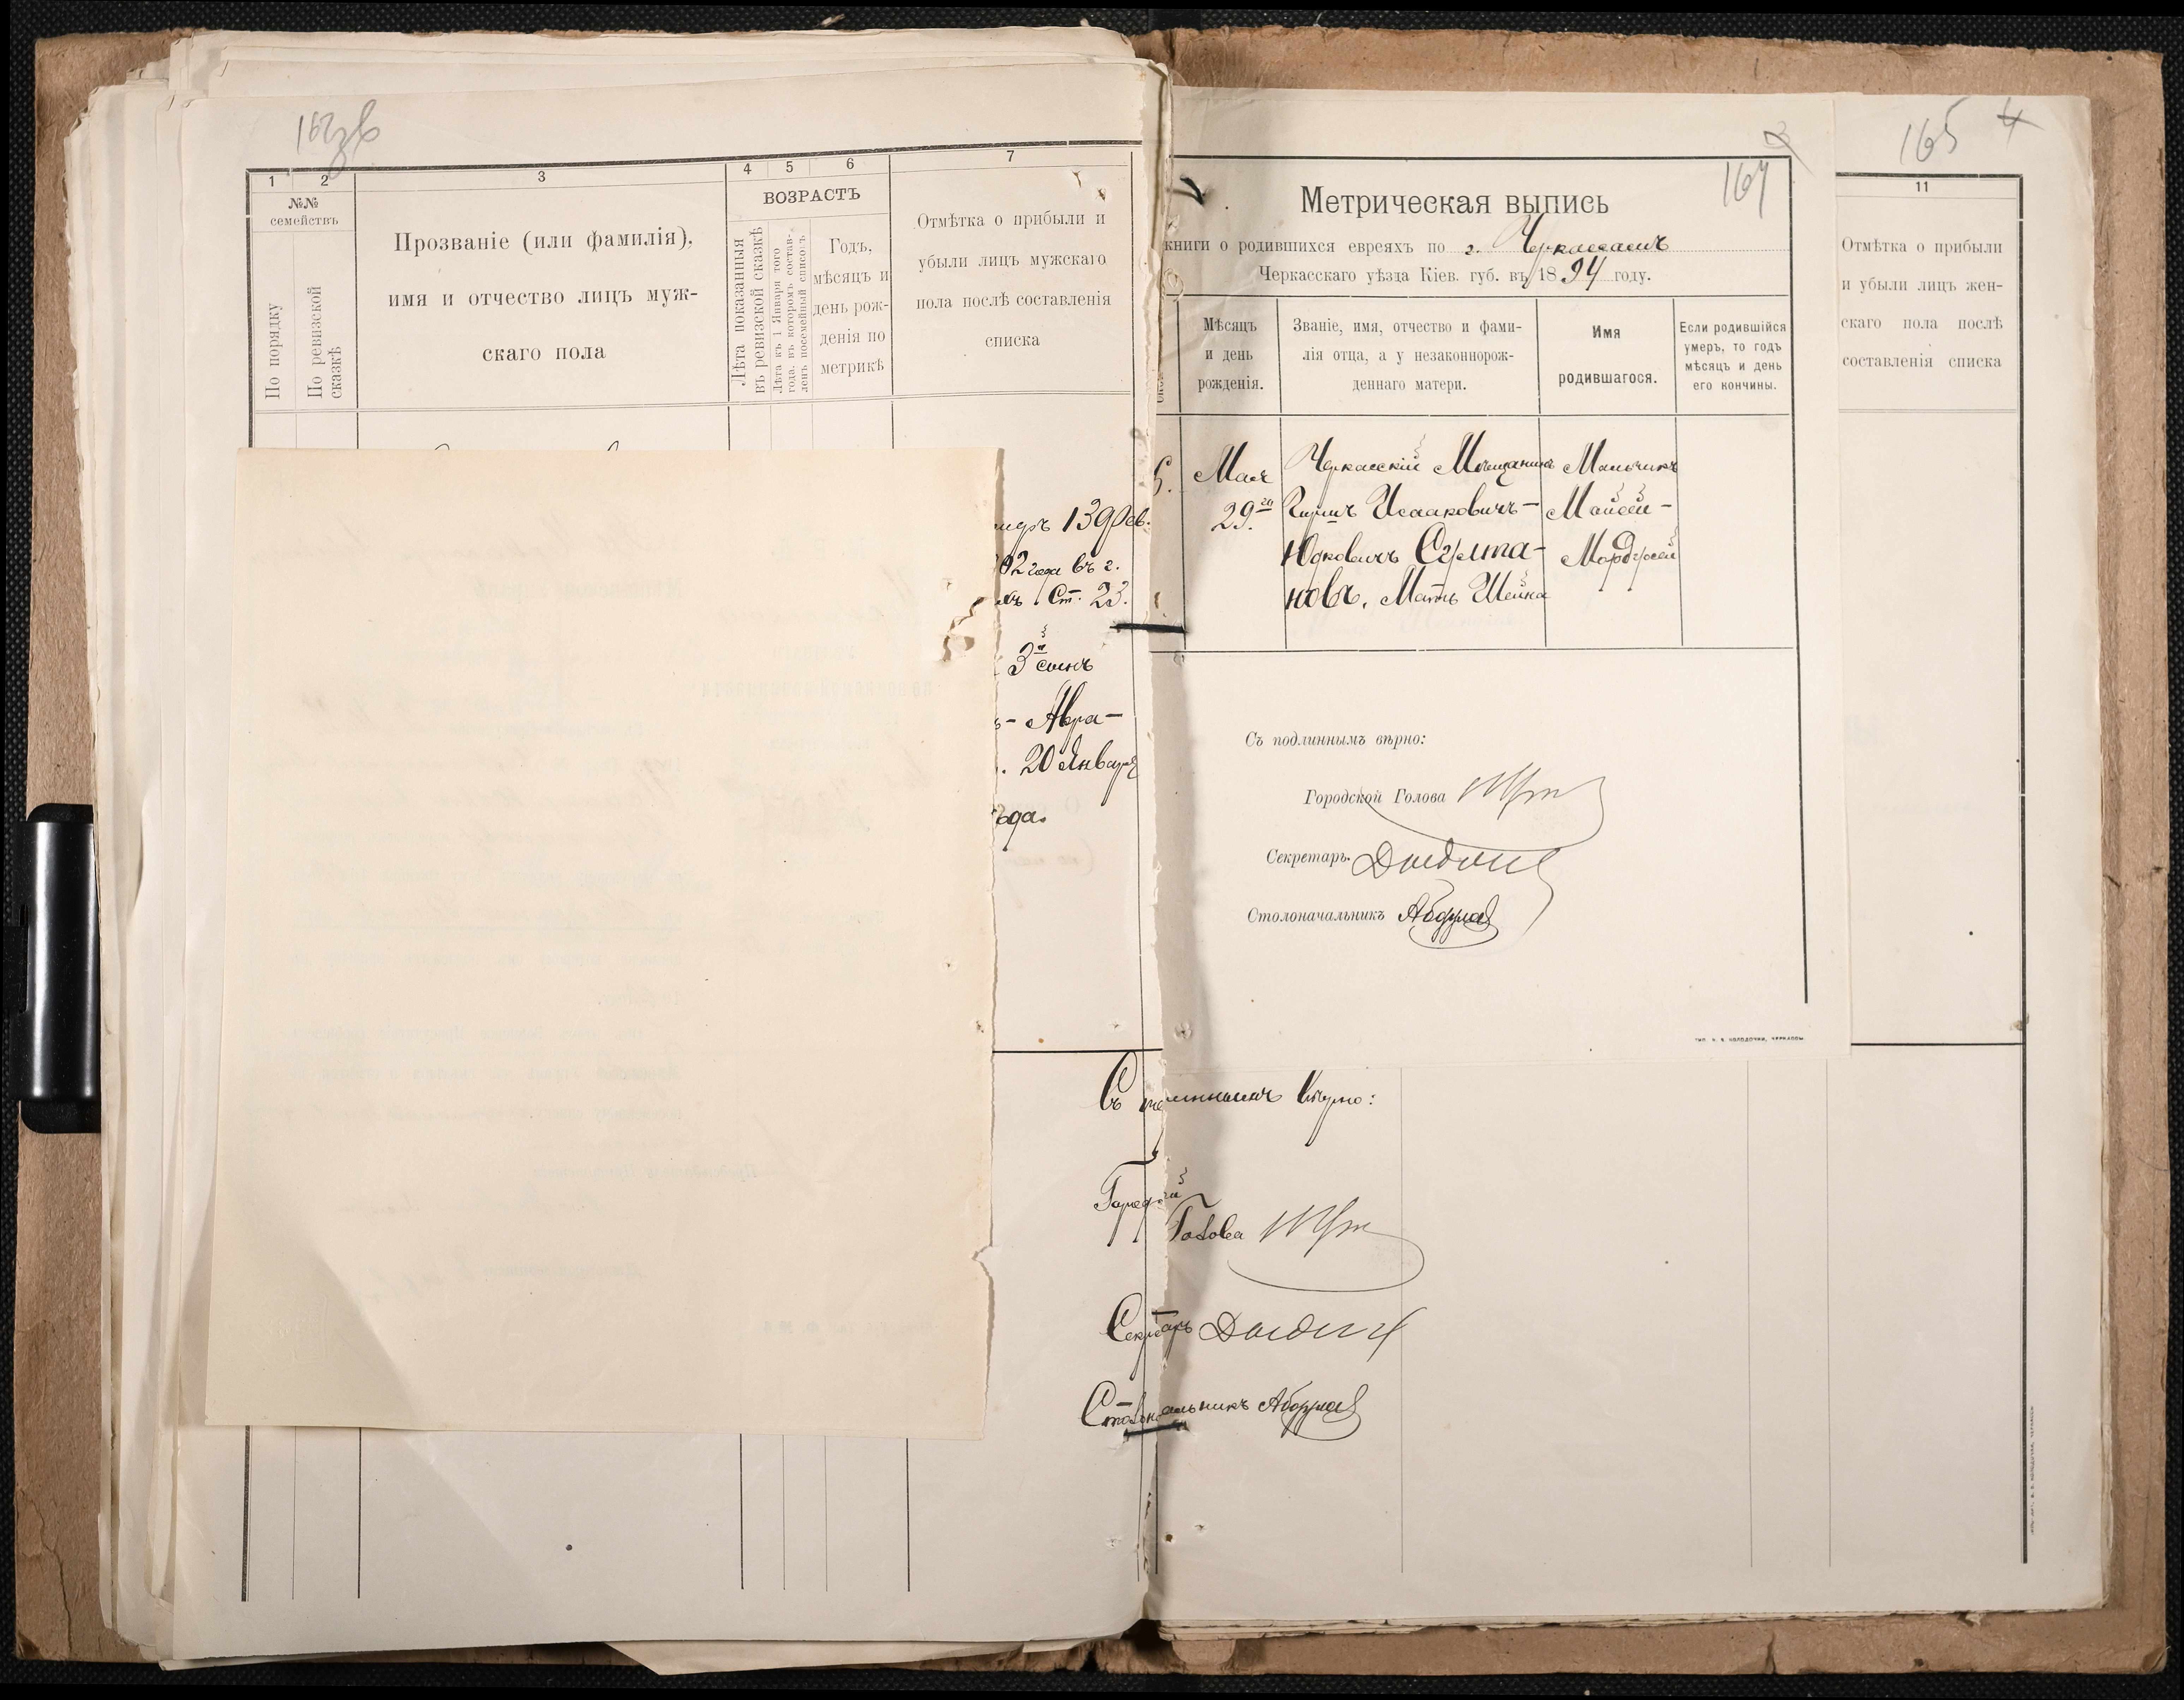 1 2 3 4 5 6 7
№№
семействъ
По порядку
По ревизской
сказкѣ
Прозваніе (или фамилія),
имя и отчество лицъ муж-
скаго пола
ВОЗРАСТЪ
Лѣта показанныя
въ ревизской сказкѣ
Лѣта къ 1 Января того
года, въ которомъ состав-
ленъ посемейный списокъ
Годъ,
мѣсяцъ и
день рож-
денія по
метрикѣ
Отмѣтка о прибыли и
убыли лицъ мужскаго
пола послѣ составленія
списка
13 Фев.
02 года въ г.
Ст. 23.
3й сынъ
Авра-
20 Января
ода.
164
Метрическая выпись
книги о родившихся евреяхъ по г. Черкассамъ
Черкасскаго уѣзда Кіев. губ. въ 1894 году.
Мѣсяцъ
и день
рожденія.
Званіе, имя, отчество и фами-
лія отца, а у незаконнорож-
деннаго матери.
Имя
родившагося.
Если родившійся
умеръ, то годъ
мѣсяцъ и день
его кончины.
Мая
29го
Черкасскій Мѣщанинъ
Исааковичъ-
Юдковичъ Султа-
новъ. Мать Шейна
Мальчикъ
Мойсей-
Мордухай
Съ подлиннымъ вѣрно:
Городской Голова
Секретарь
Столоначальникъ
ТИП. В. В. КОЛОДОЧКИ, ЧЕРКАССЫ
165 4
11
Отмѣтка о прибыли
и убыли лицъ жен-
скаго пола послѣ
составленія списка
Съ подлиннымъ вѣрно:
Городской
Голова
Секретарь
Столоначальникъ